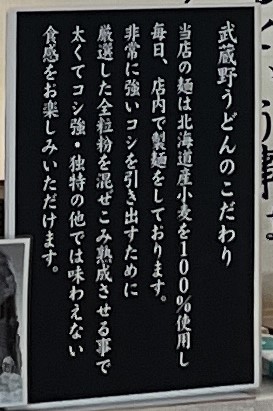 武蔵野うどんのこだわり
当店の麺は北海道産小麦を100%使用し
毎日、店内で製麺をしております。
非常に強いコシを引き出すために
厳選した全粒粉を混ぜこみ熟成させる事で
太くてコシ強・独特の他では味わえない
食感をお楽しみいただけます。